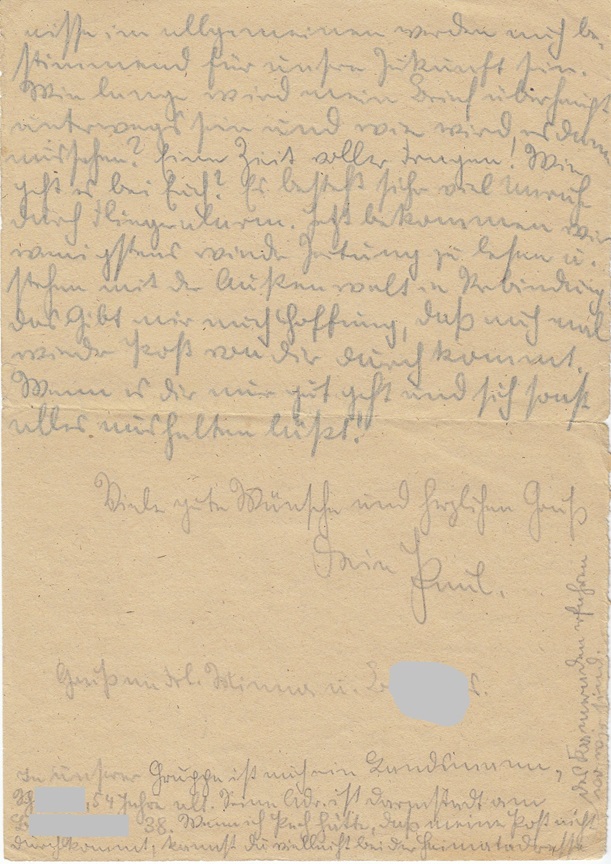 nisse im allgemeinen werden auch be-
stimmend für unsere Zukunft sein.
Wie lange wird mein Brief überhaupt
unterwegs sein und wie wird es dann
aussehen? Eine Zeit voller Fragen! Wie
geht es bei Euch? Es besteht sicher viel Unruhe
durch Fliegeralarm. Jetzt bekommen wir
wenigstens wieder Zeitung zu lesen u.
stehen mit der Außenwelt in Verbindung
das gibt mir auch Hoffnung, daß auch mal
wieder Post von dir durchkommt.
Wenn es dir nur gut geht und sich sonst
alles aushalten läßt!
Viele gute Wünsche und herzlichen Gruß
Dein Paul.
Gruß an Frl. Minna u.
In unserer Gruppe ist auch ein Landsmann,
54 Jahre alt. Seine Adr. ist Darmstadt am
38. Wenn ich Pech hätte, daß meine Post nicht
durchkommt, kannst du vielleicht bei der Heimatadresse
des Kameraden erfahren
wo wir sind.